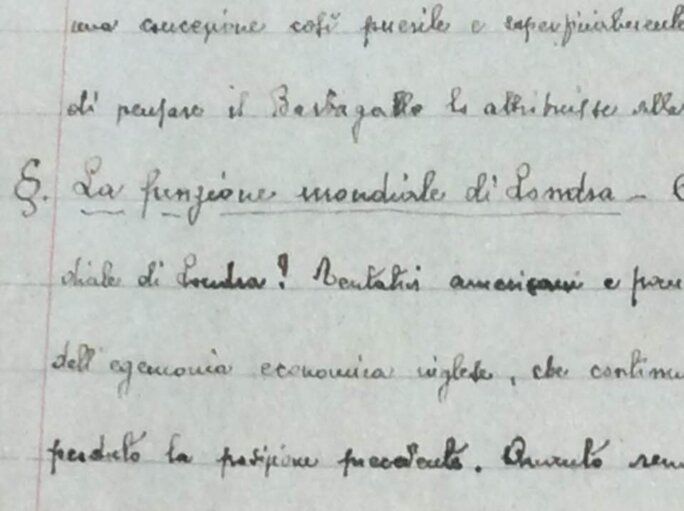 una concezione così puerile e
di pensare il Barbagallo la attribuisse alla
§. La funzione mondiale di Londra –
diale di Londra? Tentativi americani e
dell'egemonia economica inglese, che
perduto la posizione precedente.